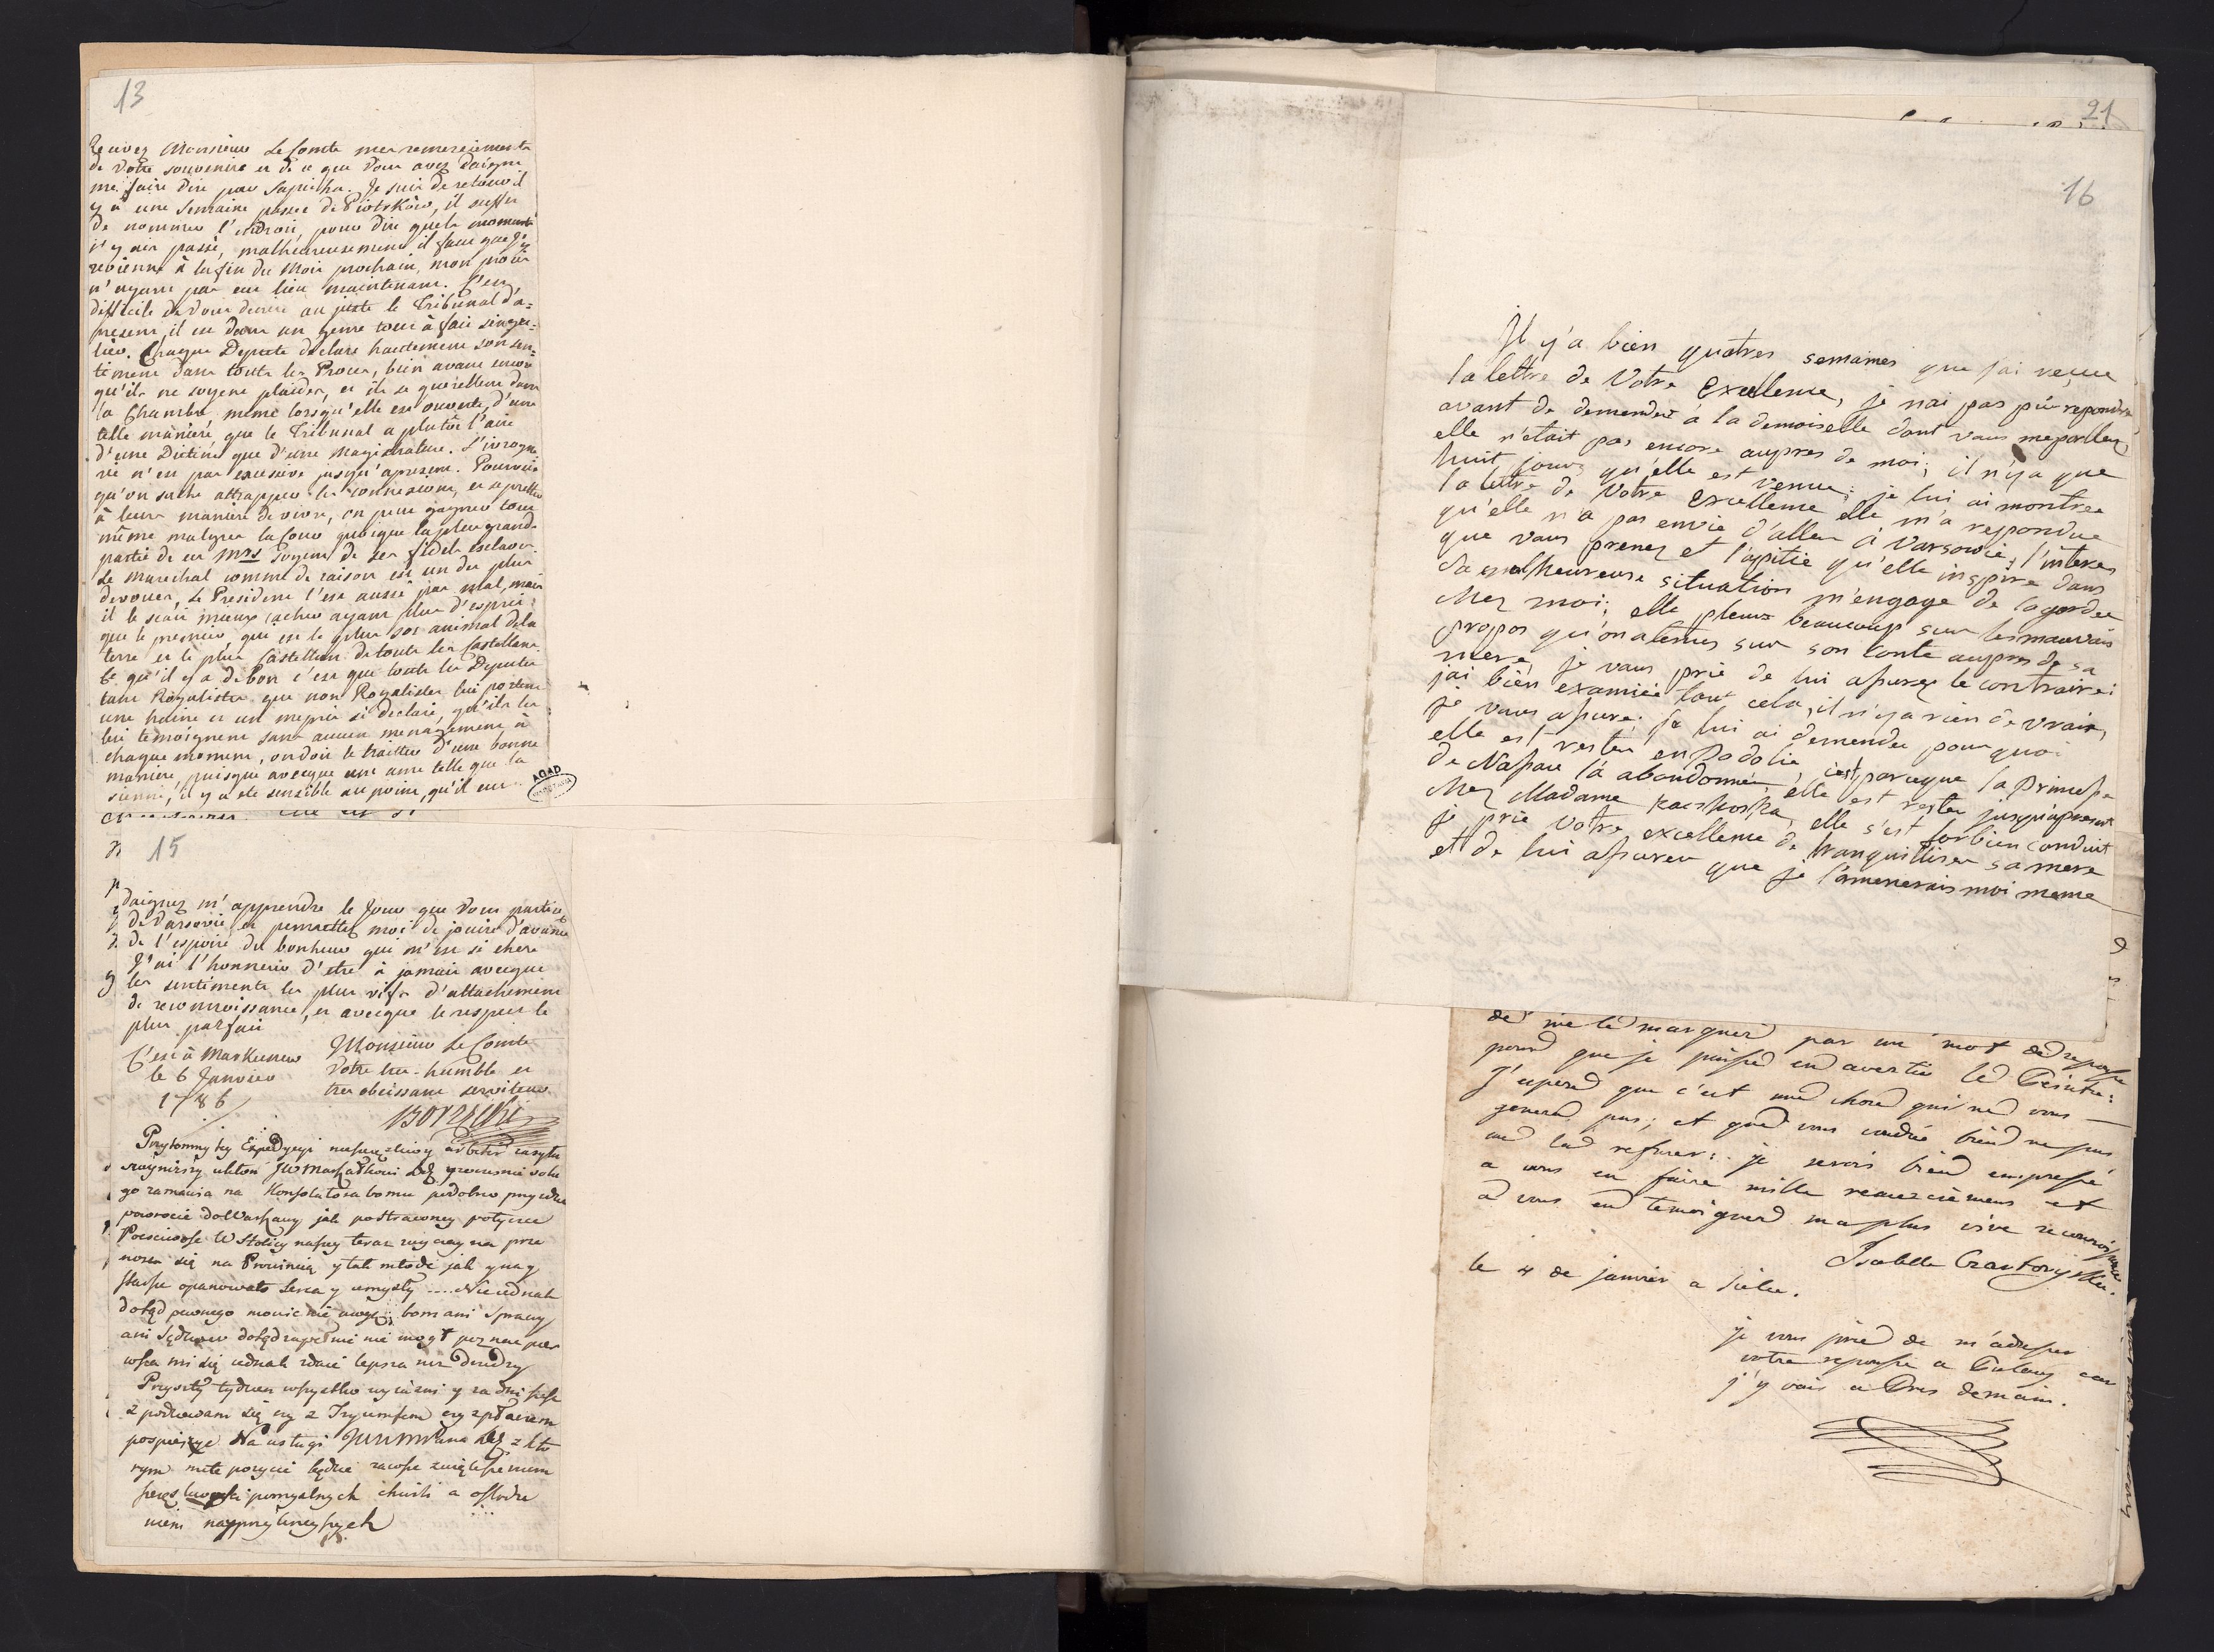 13
Recevez Monsieur Le Comte mes remerciements
de Votre souvenire et de ce que Vous avez daigne
me faire dire par Sapieha. Je suis de retour il
y a une Semaine passee de Piotrków, il suffit
de nommer l'endroit, pour dire quels moments
j'y ais passé, malheureusement il faut que j'y
revienne à la fin du Mois prochain, mon proces
n'ayant pas eu lieu maintenant. C'est
difficile de Vous decrire au juste le Tribunal d'a=
present, il est dans un genre tout à fait singu=
lier. Chaque Deputé declare hautement son sen=
timent dans touts les Proces, bien avant encore
qu'ils ne soyent plaides, et ils se querellent dans
la Chambre même lorsqu'elle est ouverte, d'une
telle manière que le Tribunal a plutôt l'air
d'une Dietine que d'une Magistrature. L'ivrogne
rie n'est pas excessive jusqu'apresent. Pourvu
qu'on sache attrapper les connexions, et s'pretter
à leur maniere de vivre, on peut gagner tout
même malgres la Cour quoique la plus grande
partie de ces Mrs soyent de ses fidels esclaves.
Le Marechal comme de raison est un des plus
devoues, Le President l'est aussi pas mal, mais
il le scait mieux cacher ayant plus d'esprit
que le premier, qui est le plus sot animal de la
terre et le plus Castellan de touts les Castellans.
Ce qu'il y a de bon c'est que touts les Deputes
tant Royalistes que non Royalistes lui portent
une haine et un mepris si declaré, qu'ils les
lui temoignent sans aucun menagement à
chaque moment, on doit le traitter d'une bonne
maniere, puisque avecque une ame telle que la
sienne, il y a ete sensible au point, qu'il en
AGAD
15
daignez m'apprendre le Jour que Vous partires
de Varsovie, et permettes moi de jouire d'avance
de l'espoire du bonheur qui m'est si chere
J'ai l'honneur d'etre à jamais avecque
les sentiments les plus vifs d'attachement
de reconnoissance, et avecque le respect le
plus parfait
Monsieur Le Comte
Votre tres-humble et
tres obeissant serviteur
C'est à Markuszew
le 6 Janvier
1786
Przytomny tey Expedycyi
ukłon JW Marszałkowi
go zamawia na Konsolatora bo mu podobno przy
powrocie do Warszawy jak po straconey potyczce
W Stolicy naszey teraz
nosza się na Prowincią y tak młode jak
starsze opanowało serca y umysły .... Nie iednak
dotąd pewnego mowic nie mogę; bom ani Sprawy
ani Sędziow dotąd zupełnie nie mogł poznać
mi się iednak zdaie lepsza niz
Przyszły tydzien wszystko wyiaśni y za dni
spodziewam się czy z Tryumfem czy z płaczem
pospieszyć Na usługi
rym miłe pozycie będzie zawsze
pomyslnych chwili a osłodze
niem nayprzykrzeyszych
21
16
Il y'a bien quatres semaines que j'ai reçue
la lettre de Votre Exellence, je n'ai pas pû repondre
avant de demender à la demoiselle dont vous me parllez
elle n'etait pas encore aupres de moi; il n'y a que
huit jours qu'elle est venue; je lui ai montree
la lettre de Votre Excellence elle m'a repondue
qu'elle n'a pas envie d'aller à Varsowie, l'interes
que vous prenez et l'apitie qu'elle inspire dans
sa malheureuse situation m'engage de la garder
chez moi; elle pleure beaucoup sur les mauvais
propos qu'on a tenus sur son conte aupres de sa
mere, je vous prie de lui assurez le contraire;
j'ai bien examiée tout cela, il n'y a rien de vrais,
je vous assure. Je lui ai demender pourquoi
elle est rester en Podolie, c'est parceque la Princesse
de Nassau l'à abandonnée, elle est rester jusqu'apresent
chez Madame Kossakoska, elle s'est forbien conduit
je prie Votre excellence de tranquilliser sa mere
et de lui assurer que je l'amenerais moi meme
de me le marquer par un mot de reponse
pour que je puisse en avertir le Peintre:
J'espere que c'est une chose qui ne vous
genera pas; et que vous voudrés bien ne pas
me la refuser: je serois bien empressé
a vous en faire mille remerciemens et
a vous en temoigner ma plus vive reconnoissance
Isabelle Czartoryska.
le 4 de janvier a Siele.
je vous prie de m'adresser
votre reponse a Pulawy car
j'y vais a Pres demain.